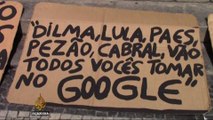 "DILMA, LULA, PAES,
PEZÃO, CABRAL, VÃO
TODOS VOCÊS TOMAR
NO GOOGLE"